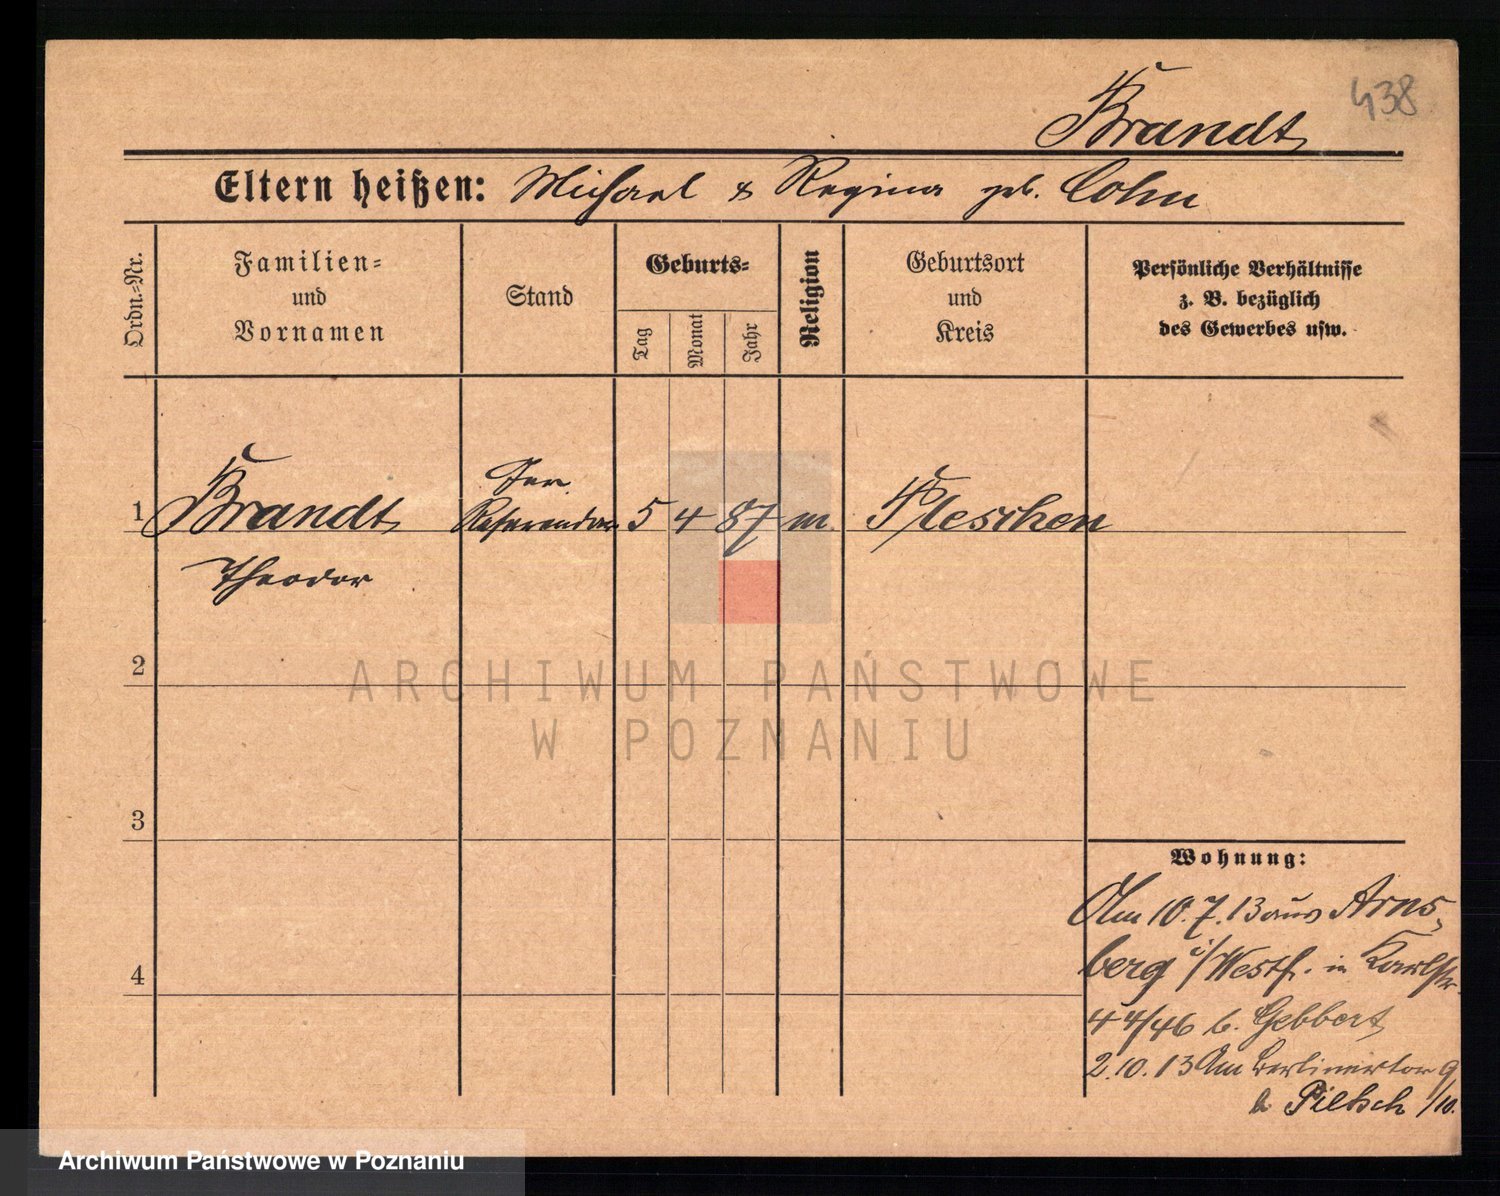 438
Brandt
Eltern heißen: Michael & Regina geb. Cohn
Ordn.-Nr.
Familien-
und
Vornamen
Stand
Geburts-
Tag
Monat
Jahr
Religion
Geburtsort
und
Kreis
Persönliche Verhältnisse
z. B. bezüglich
des Gewerbes usw.
1 Brandt Referendar 5 4 87 m. Pleschen
Theodor
2
3
4
Wohnung:
Am 10.7.13 aus Arns-
berg i/Westf. in Karlstr.
44/46 b. Gebbert
2.10.13 Am Berlinertor 9
b. Pietsch /10.
ARCHIWUM PAŃSTWOWE
W POZNANIU
Archiwum Państwowe w Poznaniu